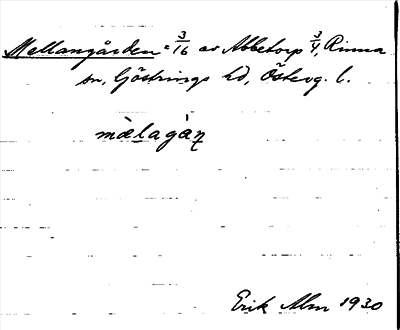 Mellangården = 3/16 av Abbetorp 3/4, Rinna
sn, Göstrings hd, Österg. l.
màlagáɳ
Erik Alm 1930